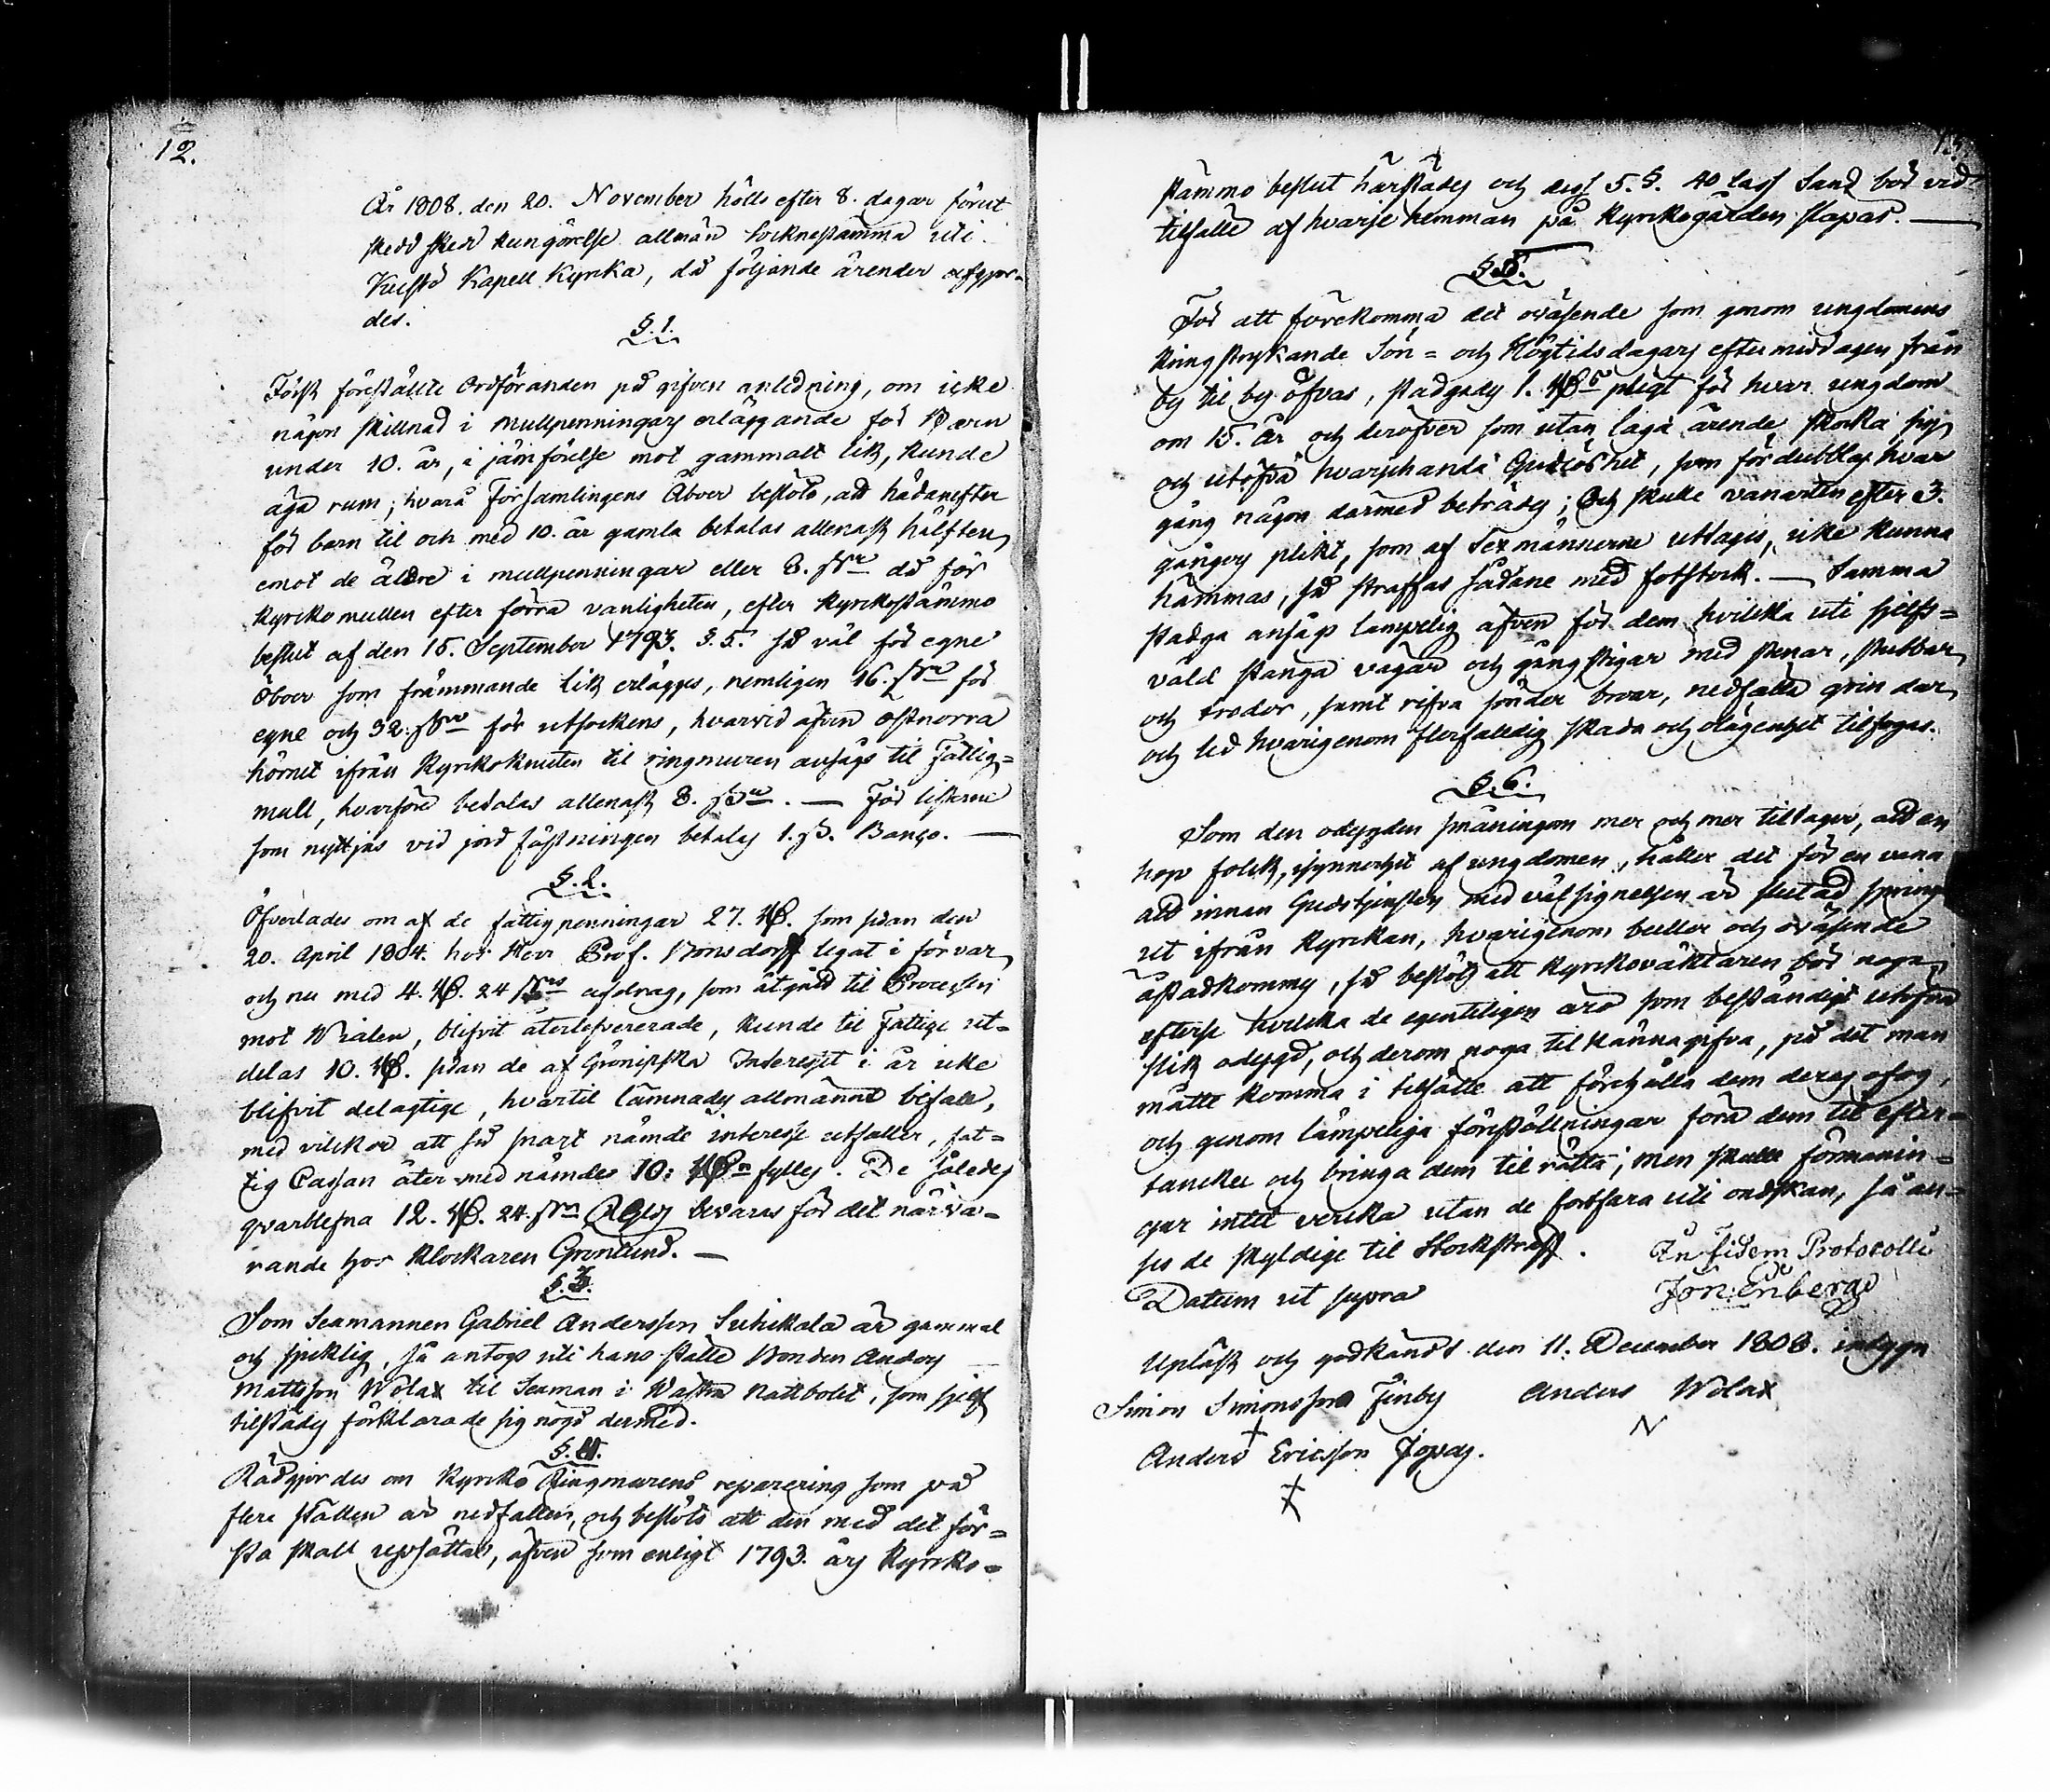 12.
År 1808. den 20. November hölls efter 8. dagar förut
skedd sked kungörelse allmän Socknestämma uti
Kuistö Kapell Kyrka, då följande ärender afgjor-
des.
§. 1.
Först föreställte Ordföranden på gifven anledning, om icke
någon skillnad i mullpenningars erläggande för Barn
under 10. år, i jämförelse mot gammalt lik, kunde
äga rum; hvarå Församlingens Åboer beslöto, att hädanefter
för barn til och med 10. år gamla betalas allenast hälften
emot de äldre i mullpenningar eller 8. sk. då för
Kyrko mullen efter förra vanligheten, efter Kyrckostämmo
beslut af den 15. September 1793. §. 5. så väl för egne
Åboer som främmande lik erlägges, nemligen 16. sk. för
egne och 32. sk. för utsockens, hvarvid äfven östnorra
hörnet ifrån Kyrckoknuten til ringmuren ansågs til Fattig-
mull, hvarföre betalas allenast 8. sk. — För
som nyttjas vid jord fästningen betalas 1. sk. Banco. —
§. 2.
Öfverlades om af de fattigpenningar 27. Rd. som sedan den
20. April 1804. hos Herr Prof. Bonsdorff legat i förvar
och nu med 4. Rd. 24 sk. afdrag, som åtgådt til Processen
mot Wialen, blifvit återlefvererade, kunde til Fattige ut-
delas 10. Rd. sedan de af Interesset i år icke
blifvit delagtige, hvartil lämnades allmännt bifall,
med vilckor att så snart nämde interesse utfaller, fat-
tig Cassan åter med nämdes 10: Rd. fylles. De således
qvarblefna 12. Rd. 24. sk. Rgs bevaras för det närva-
rande hos Klockaren Grönlund. —
§. 3.
Som Sexmannen Gabriel Andersson Suhikala är gammal
och sjuklig, så antogs uti hans ställe Bonden Anders
Mattsson Wolax til Sexman i Wästra Nattbolet, som sjelf
tilstädes förklarade sig nögd dermed.
§. 4.
Rådgjordes om Kyrcko Ringmurens reparering som på
flere ställen är nedfallen, och beslöts att den med det för-
sta skall uppsättas, äfven som enligt 1793. års Kyrcko-
stämmo beslut härstädes och dess 5. §. 40 lass Sand bör vid
tilfälle af hvarje hemman på Kyrckogården släpas. —
§ 5.
För att förekomma det oväsende som genom ungdomens
kringstrykande Sön- och Högtidsdagars eftermiddagen från
by til by öfvas, stadgades 1. Rd. pligt för hvar ungdom
om 15. år och deröfver som utan laga ärende stryka sig
och utöfva hvarjehanda Gudlöshet, som fördubblas hvar
gång någon därmed beträdes; Och skulle vanarten efter 3.
gångers plikt, som af Sexmännerne uttages, icke kunna
hämmas, så straffas sådane med fotstock. — Samma
stadga ansågs lämpelig äfven för dem hvilcka uti sjelfs-
våld stänga vägar och gångstigar med stenar, stubbar
och trodor, samt rifva sönder broar, nedfälla grindar
och led hvarigenom flerfalldig skada och olägenhet tilfogas.
§. 6.
Som den odygden småningom mer och mer tiltager, att en
hop folck, synnerhet af ungdomen, håller det för en vana
att innan Gudstjensten med välsignelsen är slutad springa
ut ifrån Kyrckan, hvarigenom buller och oväsende
åstadkommes, så beslöts att Kyrckoväktaren bör noga
efterse hvilcka de egenteligen äro som beständigt utöfva
slik odygd, och derom noga til känna gifva, på det man
måtte komma i tilfälle att förehålla dem deras ofog,
och genom lämpeliga föreställningar föra dem til efter-
tancke och bringa dem til rätta; men skulle förmanin-
gar intet verka utan de fortfara uti ondskan, så an-
ses de skyldige til Stockstraff.
In fidem Protocolli
Datum ut supra
Jon: Enberg
Upläst och godkändt den 11. December 1808. intygar
Simon Simonsson Finby Anders Wolax
Anders Ericsson